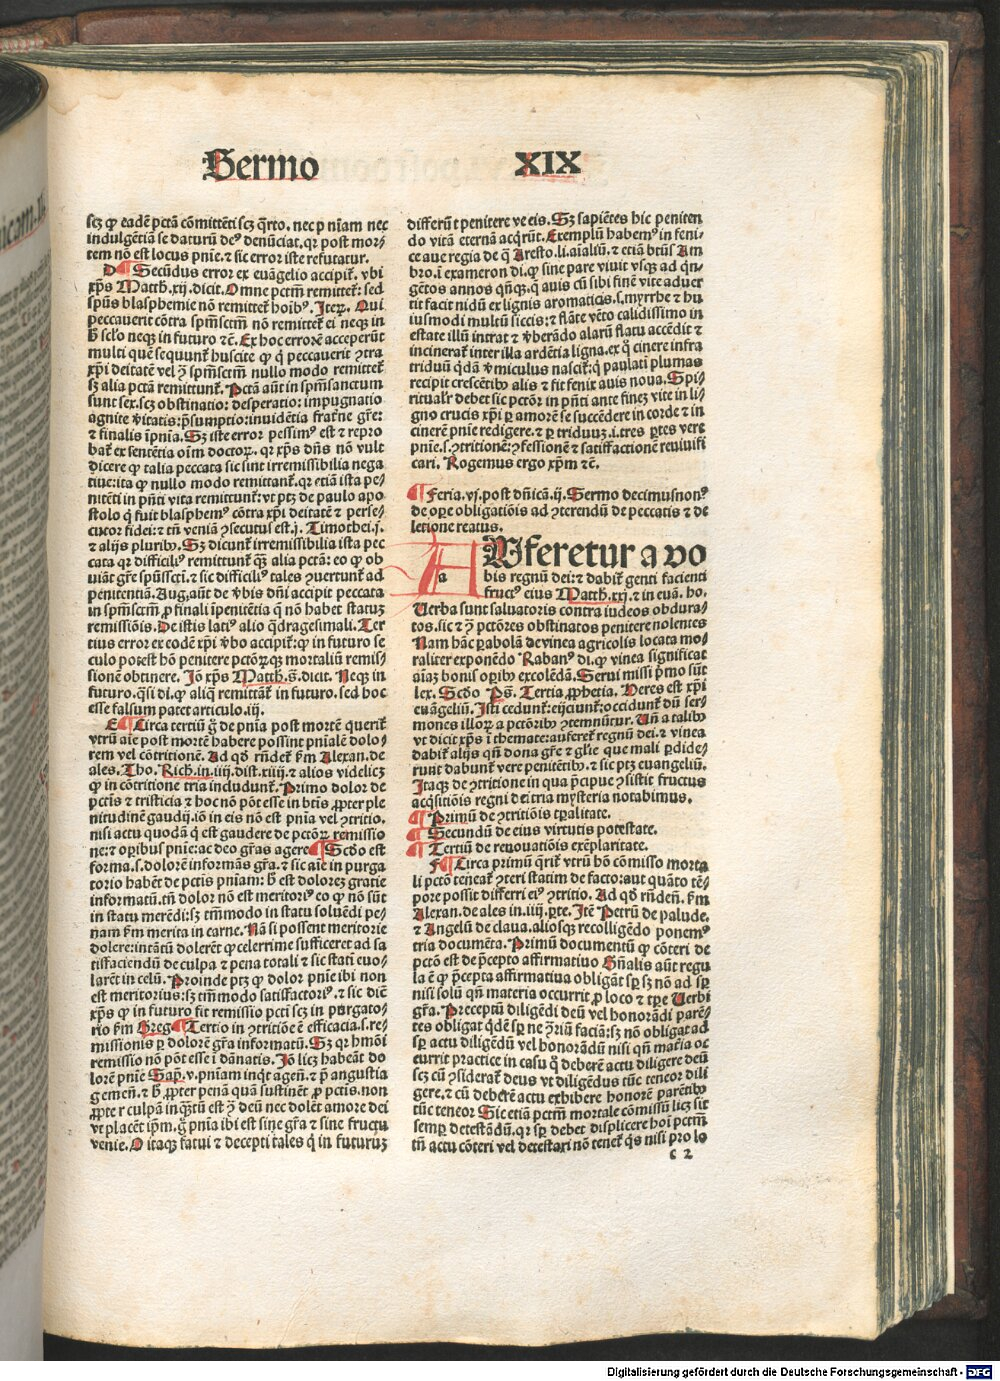 Sermo XIX
scꝫ ꝙ eadē pctā cōmittēti scꝫ q̄rto. nec p nīam nec
indulgētiā se daturū deꝰ denūciat. qꝛ post mor⸗
tem nō est locus pnīe. ⁊ sic error iste refutatur.
D ¶ Secūdus error ex euāgelio accipit̉. vbi
xp̄s Matth. xij. dicit. Omne pctm̄ remittet̉: sed
spūs blasphemie nō remittet̉ hoībꝰ. Iteꝝ. Qui
peccauerit cōtra spm̄sctm̄ nō remittet̉ ei neqꝫ in
h̄ sclo neqꝫ in futuro ⁊c̄. Ex hoc errorē acceperūt
multi quē sequunt̉ husicite ꝙ q̇ peccauerit ꝯtra
xpi deitatē vel ꝯ̄ spm̄sctm̄ nullo modo remittet̉
sꝫ alia pctā remittunt̉. Pctā aūt in spm̄sanctum
sunt sex. scꝫ obstinatio: desperatio: impugnatio
agnite v̓itatis: p̄sumptio: inuidētia frat̄ne gr̄e:
⁊ finalis īpnīa. Sꝫ iste error pessimꝰ est ⁊ repro
bat̉ ex sententia oīm doctoꝝ. qꝛ xp̄s dn̄s nō vult
dicere ꝙ talia peccata sic sint irremissibilia nega
tiue: ita ꝙ nullo modo remittant̉. qꝛ etiā ista pe⸗
nitēti in pn̄ti vita remittunt̉: vt ptꝫ de paulo apo
stolo q̇ fuit blasphemꝰ cōtra xpi deitatē ⁊ perse⸗
cutor fidei: ⁊ tn̄ veniā ꝯsecutus est. j. Timothei. j.
⁊ alijs pluribꝰ. Sꝫ dicunt̉ irremissibilia ista pec
cata qꝛ difficiliꝰ remittunt̉ q̄ꝫ alia pctā: eo ꝙ ob
uiāt gr̄e spūsscti. ⁊ sic difficiliꝰ tales ꝯuertunt̉ ad
penitentiā. Aug. aūt de v̓bis dn̄i accipit peccata
in spm̄sctm̄ ꝓ finali īpenitētia q̄ nō habet statuꝫ
remissiōis. De istis latiꝰ alio q̄dragesimali. Ter
tius error ex eodē xpi v̓bo accipit̉: ꝙ in futuro se
culo potest hō penitere pctōꝝqꝫ mortaliū remis⸗
sionē obtinere. Iō xp̄s Matth. s̄. dicit. Neqꝫ in
futuro. q̄si di. ꝙ aliq̄ remittāt̉ in futuro. sed hoc
esse falsum patet articulo. iij.
E ¶ Circa tertiū g̊ de pnīa post mortē querit̉
vtrū aīe post mortē habere possint pnīalē dolo⸗
rem vel cōtritionē. Ad q̊d rn̄det̉ s̄m Alexan. de
ales. Tho. Rich. in. iiij. dist. xiiij. ⁊ alios videlicꝫ
ꝙ in cōtritione tria includunt̉. Primo dolor de
pctis ⁊ tristicia ⁊ hoc nō pōt esse in btīs ꝓpter ple
nitudinē gaudij. iō in eis nō est pnīa vel ꝯtritio.
nisi actu quodā q̇ est gaudere de pctōꝝ remissio
ne: ⁊ oꝑibus pnīe: ac deo gr̄as agere ¶ Scdo est
forma. s. dolorē informās gr̄a. ⁊ sic aīe in purga
torio habēt de pctis pniam: h̄ est dolorez gratie
informatū. tn̄ dolor nō est meritoriꝰ eo ꝙ nō sūt
in statu merēdi: sꝫ tm̄modo in statu soluēdi pe⸗
nam s̄m merita in carne. Nā si possent meritorie
dolere: intātū dolerēt ꝙ celerrime sufficeret ad sa
tisfaciendū de culpa ⁊ pena totali ⁊ sic stati euo⸗
larēt in celū. Proinde ptꝫ ꝙ dolor pnīe ibi non
est meritorius: sꝫ tm̄modo satisfactoriꝰ. ⁊ sic diē
xp̄s ꝙ in futuro fit remissio pcti scꝫ in purgato⸗
rio s̄m Greg. ¶ Tertio in ꝯtritiōe ē efficacia. s. re⸗
missionis ꝑ dolorē gr̄a informatū. Sꝫ qꝛ hmōi
remissio nō pōt esse ī dānatis. Iō licꝫ habeāt do
lorē pnīe Sap. v. pniam inqt̉ agen̄. ⁊ p̄ angustia
gemen̄. ⁊ h̄ ꝓpter penā quā sustinēt ꝓ pctis. non
ꝓpter culpā inq̄ꝫtū est ꝯ̄ deū nec dolēt amore dei
vt placēt ipm̄. g̊ pnīa ibi est sine gr̄a ⁊ sine fructu
venie. O itaqꝫ fatui ⁊ decepti tales q̇ in futuruꝫ
differūt penitere ve eis. Sꝫ sapiētes hic peniten
do vitā eternā acq̇rūt. Exemplū habemꝰ in feni⸗
ce aue regia de q̄ Aresto. li. aīaliū. ⁊ etiā btūs Am
bro. ī exameron di. ꝙ sine pare viuit vsqꝫ ad q̇n⸗
gētos annos q̇nqꝫ. q̄ auis cū sibi finē vite aduer
tit facit nidū ex lignis aromaticis. s. myrrhe ⁊ hu
iusmodi multū siccis: ⁊ flāte vēto calidissimo in
estate illū intrat ⁊ v̓berādo alarū flatu accēdit ⁊
incinerat̉ inter illa ardētia ligna. ex q̊ cinere infra
triduū q̇dā v̓miculus nascit̉: q̇ paulati plumas
recipit crescētibꝰ alis ⁊ fit fenix auis noua. Spi⸗
ritualr̄ debet sic pctōr in pn̄ti ante fineꝫ vite in li⸗
gno crucis xpi ꝑ amorē se succēdere in corde ⁊ in
cinerē pnīe redigere. ⁊ ꝑ triduuꝫ. i. tres ꝑtes vere
pnīe. s. ꝯtritionē: ꝯfessionē ⁊ satisfactionē reuiuifi
cari. Rogemus ergo xpm̄ ⁊c̄.
¶ Feria. vj. post dn̄icā. ij. Sermo decimusnonꝰ
de oꝑe obligatiōis ad ꝯterendū de peccatis ⁊ de
letione reatus.
A Auferetur a vo
bis regnū dei: ⁊ dabit̉ genti facienti
fructꝰ eius Matth. xxj. ⁊ in euā. ho.
Uerba sunt saluatoris contra iudeos obdura⸗
tos. sic ⁊ ꝯ̄ pctōres obstinatos penitere nolentes
Nam hāc ꝑabolā de vinea agricolis locata mo⸗
raliter exponēdo Rabanꝰ di. ꝙ vinea significat
aīaꝫ bonis oꝑibꝰ excolēdā. Serui missi p̄mo sūt
lex. Scdo Ps̄. Tertia ꝓphetia. Heres est xpi
euāgeliū. Isti cedunt̉: eijciunt̉: occidunt̉ dū ser⸗
mones illoꝝ a pctōribꝰ ꝯtemnūtur. Un̄ a talibꝰ
vt dicit xp̄s ī themate: auferet̉ regnū dei. ⁊ vinea
dabit̉ alijs q̇n dona gr̄e ⁊ gl̄ie que mali ꝑdide⸗
runt dabunt̉ vere penitētibꝰ. ⁊ sic ptꝫ euangeliū.
Itaqꝫ de ꝯtritione in qua p̄cipue ꝯsistit fructus
acq̇sitiōis regni dei tria mysteria notabimus.
¶ Primū de ꝯtritiōis tꝑalitate.
¶ Secundū de eius virtutis potestate.
¶ Tertiū de renouatiōis exēplaritate.
F ¶ Circa primū q̄rit̉ vtrū hō cōmisso morta
li pctō teneat̉ ꝯteri statim de facto: aut quāto tē⸗
pore possit differri eiꝰ ꝯtritio. Ad q̊d rn̄den̄. s̄m
Alexan. de ales in. iiij. ꝑte. Itē Petrū de palude.
⁊ Angelū de claua. aliosqꝫ recolligēdo ponemꝰ
tria documēta. Primū documentū ꝙ cōteri de
pctō est de p̄cepto affirmatiuo Gn̄alis aūt regu
la ē ꝙ p̄cepta affirmatiua obligāt sꝑ sꝫ nō ad sꝑ
nisi solū qn̄ materia occurrit ꝓ loco ⁊ tꝑe Uerbi
gr̄a. Preceptū diligēdi deū vel honorādi parē⸗
tes obligat q̇dē sꝑ ne ꝯ̄riū faciā: sꝫ nō obligat ad
sꝑ actu diligēdū vel honorādū nisi qn̄ mat̄ia oc
currit practice in casu q̊ deberē actu diligere deū
scꝫ cū ꝯsiderat̉ deus vt diligēdus tūc teneor dili
gere. ⁊ cū deberē actu exhibere honorē parētibꝰ
tūc teneor Sic etiā pctm̄ mortale cōmissū licꝫ sit
semꝑ detestādū. qꝛ sꝑ debet displicere hoī pctm̄
tn̄ actu cōteri vel detestari nō tenet̉ q̇s nisi pro lo
c 2
Digitalisierung gefördert durch die Deutsche Forschungsgemeinschaft - DFG